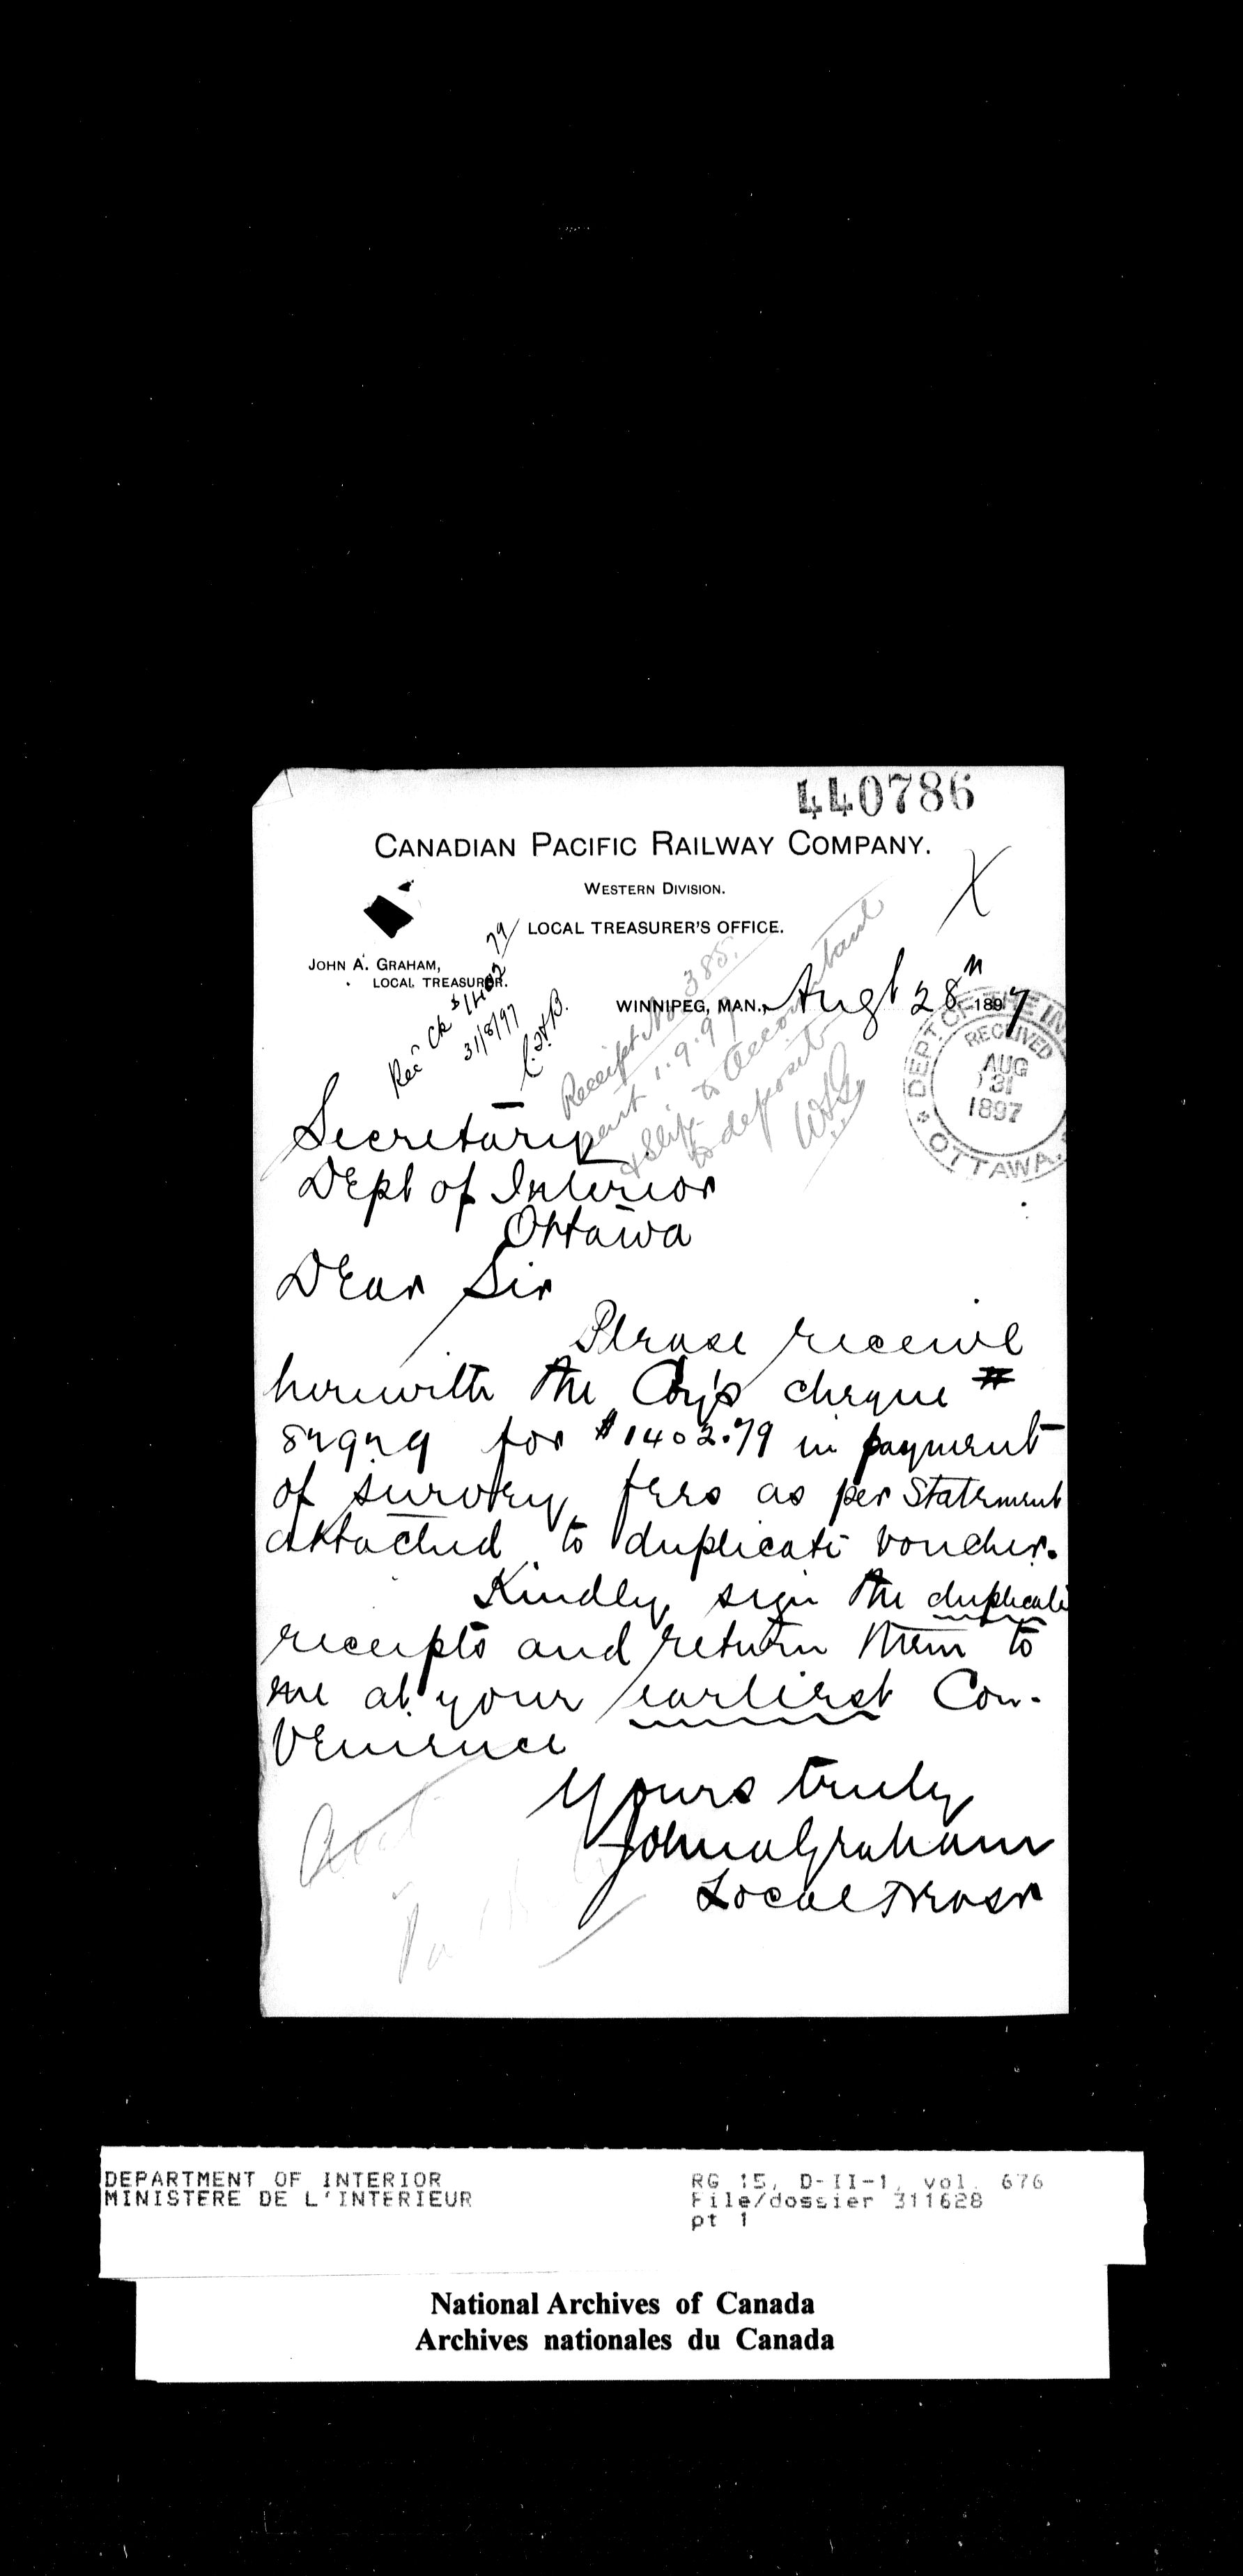 440786
CANADIAN PACIFIC RAILWAY COMPANY.
WESTERN DIVISION.
LOCAL TREASURER'S OFFICE.
JOHN A. GRAHAM,
LOCAL TREASURER.
WINNIPEG, MAN., Augt 28th 1897
X
Rec'd Ck $1402 79/
31/8/97
Receipt No. 385.
sent 1.9.97
& Slip to Accountant
to deposit
DEPT. OF THE IN
RECEIVED
AUG
31
1897
OTTAWA.
Secretary
Dept of Interior
Ottawa
Dear Sir
Please receive
herewith the Coy's cheque #
87979 for $1402.79 in payment
of survey fees as per Statement
attached to duplicate voucher.
Kindly sign the duplicate
receipts and return them to
me at your earliest Con-
venience
Yours truly
John A Graham
Local Treasr
DEPARTMENT OF INTERIOR
MINISTERE DE L'INTERIEUR
RG 15, D-II-1, vol. 676
File/dossier 311628
pt 1
National Archives of Canada
Archives nationales du Canada